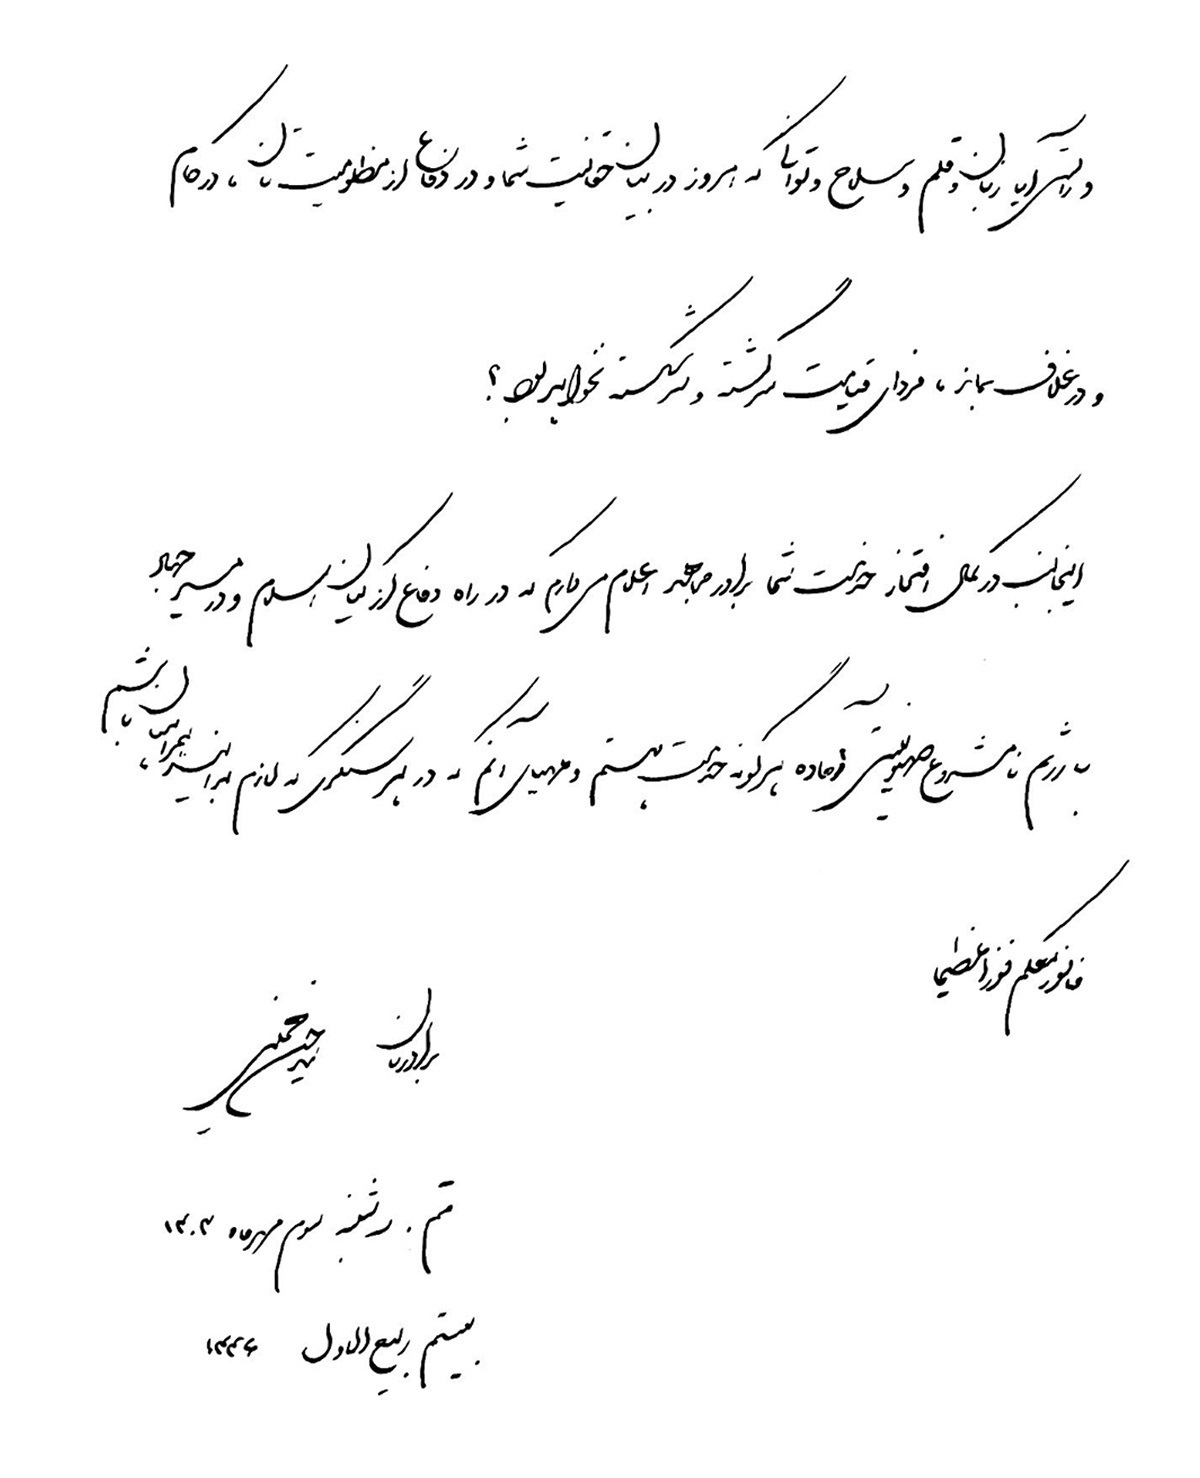 و راستی آیا زبان و قلم و سلاح و توانی که امروز در بیان حقانیت شما و در دفاع از مظلومیت تان ، در کام
و در غلاف بماند ، فردای قیامت سرگشته و سرشکسته نخواهد بود ؟
اینجانب در کمال افتخار خدمت شما برادر مجاهد اعلام می دارم که در راه دفاع از کیان اسلام و در مسیر جهاد
با رژیم نامشروع صهیونیستی آماده هرگونه خدمت هستم و مهیای آنم که در هر سنگری که لازم بدانید همراهتان باشم
فافوز معکم فوزا عظیما
برادرتان
سید حسن خمینی
قم . سه شنبه سوم مهرماه ۱۴۰۳
بیستم ربیع الاول ۱۴۴۶